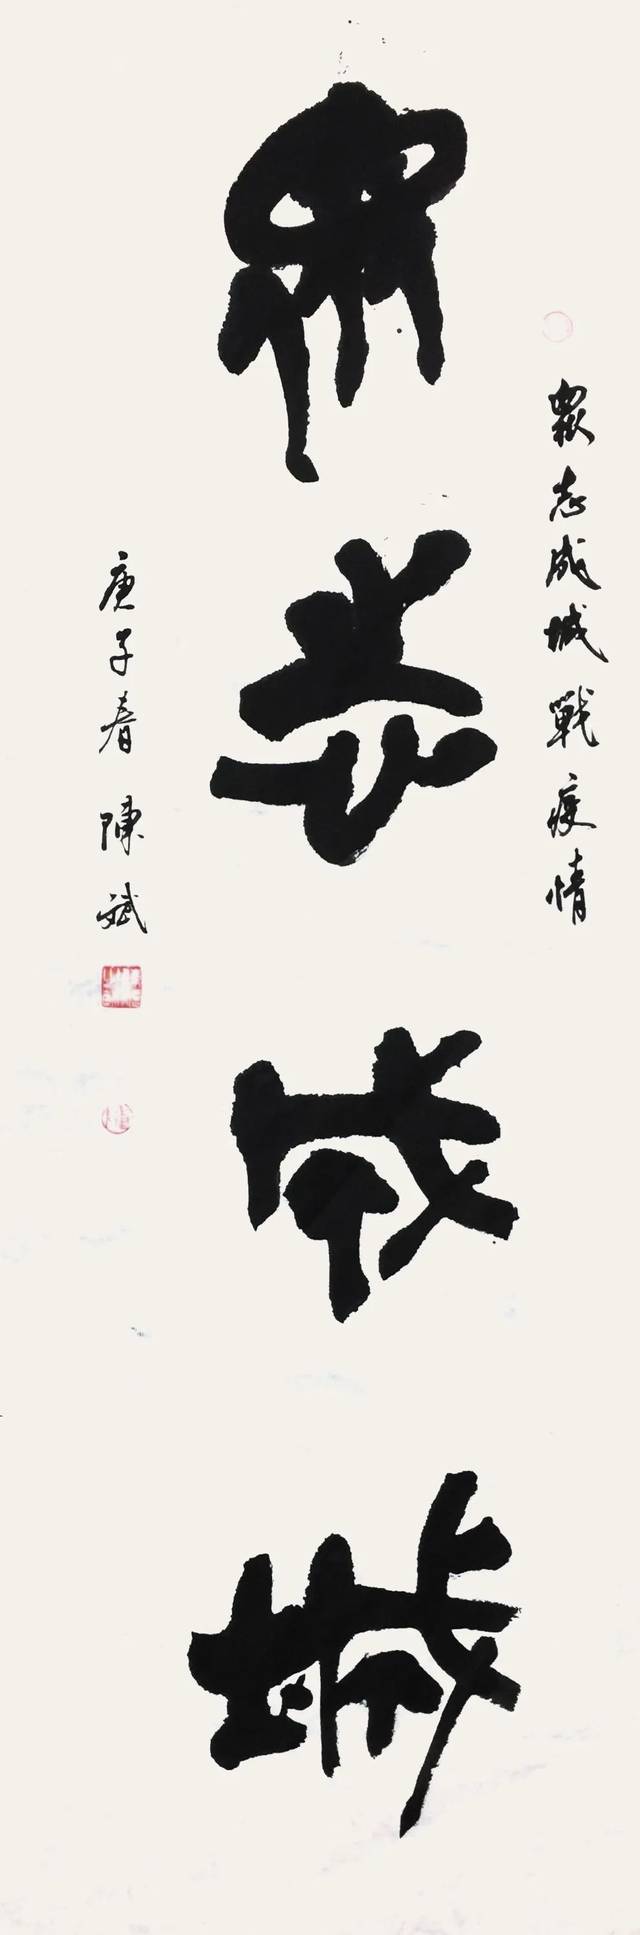 眾志成城戰疫情
眾志成城
庚子春 陳斌